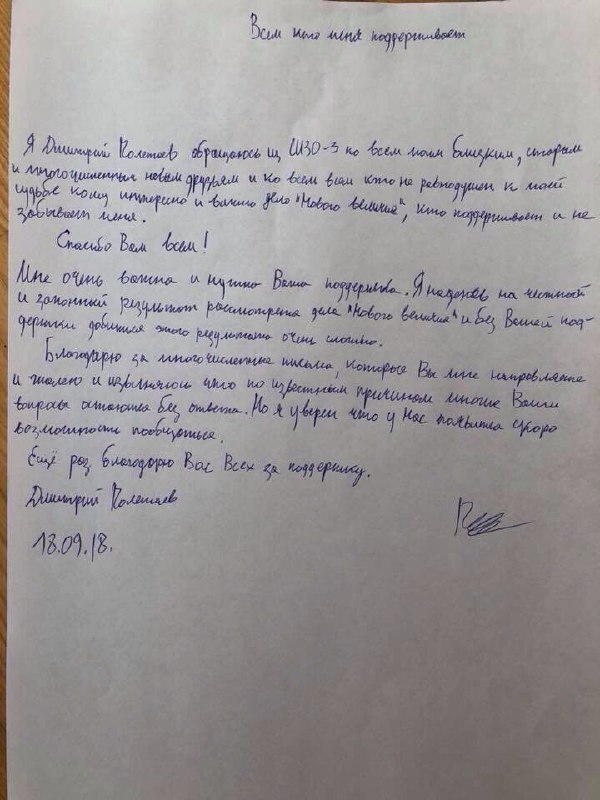 Всем кто меня поддерживает
Я Дмитрий Полетаев обращаюсь из ИЗО-3 ко всем моим близким, старым
и многочисленным новым друзьям и ко всем вам кто не равнодушен к моей
судьбе кому интересно и важно дело "Нового величия", кто поддерживает и не
забывает меня.
Спасибо Вам всем!
Мне очень важна и нужна Ваша поддержка. Я надеюсь на честный
и законный результат рассмотрения дела "Нового величия" и без Вашей под-
держки добиться этого результата очень сложно.
Благодарю за многочисленные письма, которые Вы мне направляете
и жалею и извиняюсь что по известным причинам многие Ваши
вопросы остаются без ответа. Но я уверен что у Нас появится скоро
возможность пообщаться.
Ещё раз благодарю Вас Всех за поддержку.
Дмитрий Полетаев
18.09.18.